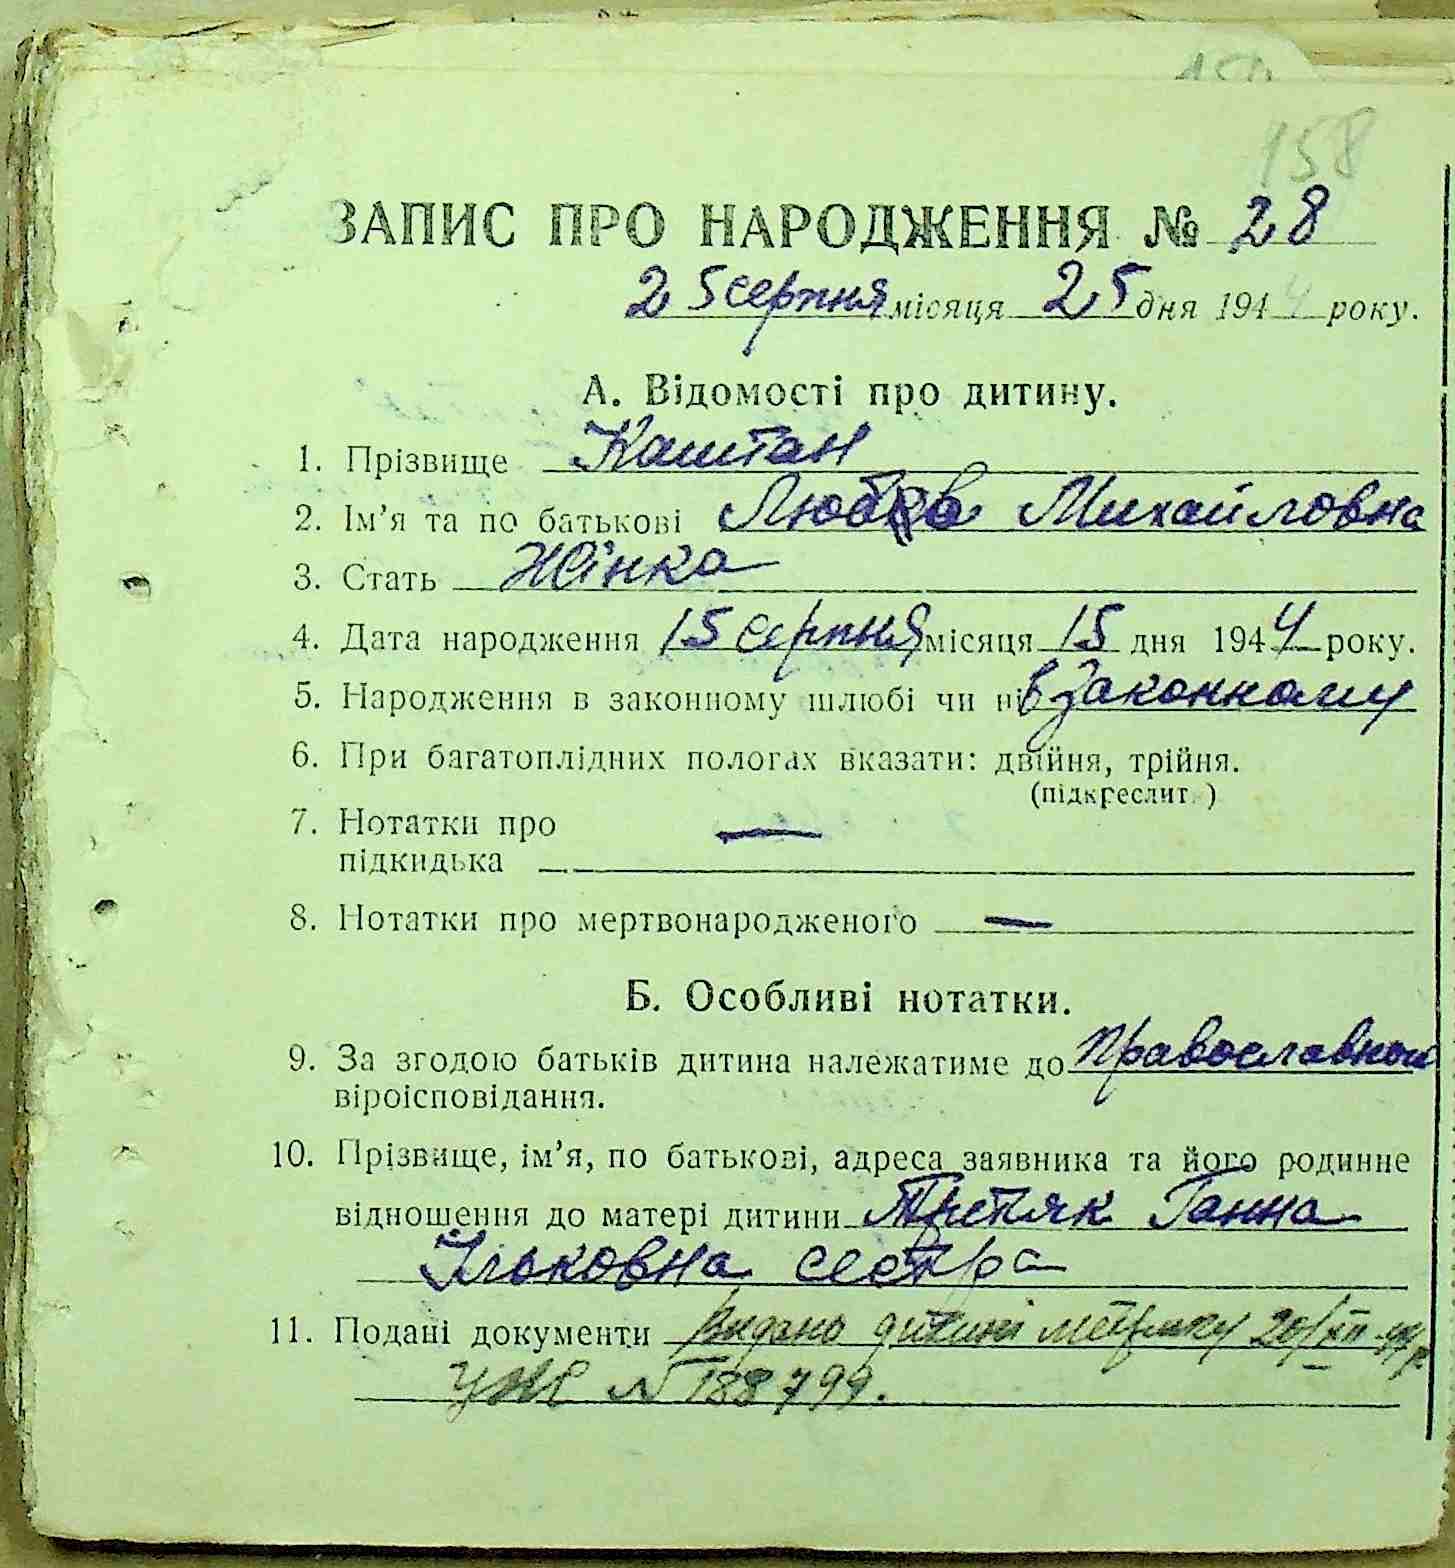 158
ЗАПИС ПРО НАРОДЖЕННЯ № 28
25 серпня місяця 25 дня 1944 року.
А. Відомості про дитину.
1. Прізвище Каштан
2. Ім’я та по батькові Любов Михайловна
3. Стать Жінка
4. Дата народження 15 серпня місяця 15 дня 1944 року.
5. Народження в законному шлюбі чи ні в законному
6. При багатоплідних пологах вказати: двійня, трійня.
(підкреслит )
7. Нотатки про
підкидька —
8. Нотатки про мертвонародженого —
Б. Особливі нотатки.
9. За згодою батьків дитина належатиме до православной
віроісповідання.
10. Прізвище, ім’я, по батькові, адреса заявника та його родинне
відношення до матері дитини Третяк Ганна
Ільковна сестра
11. Подані документи Видано дитині метрику 20/XII-44 р.
УЖ № 188799.